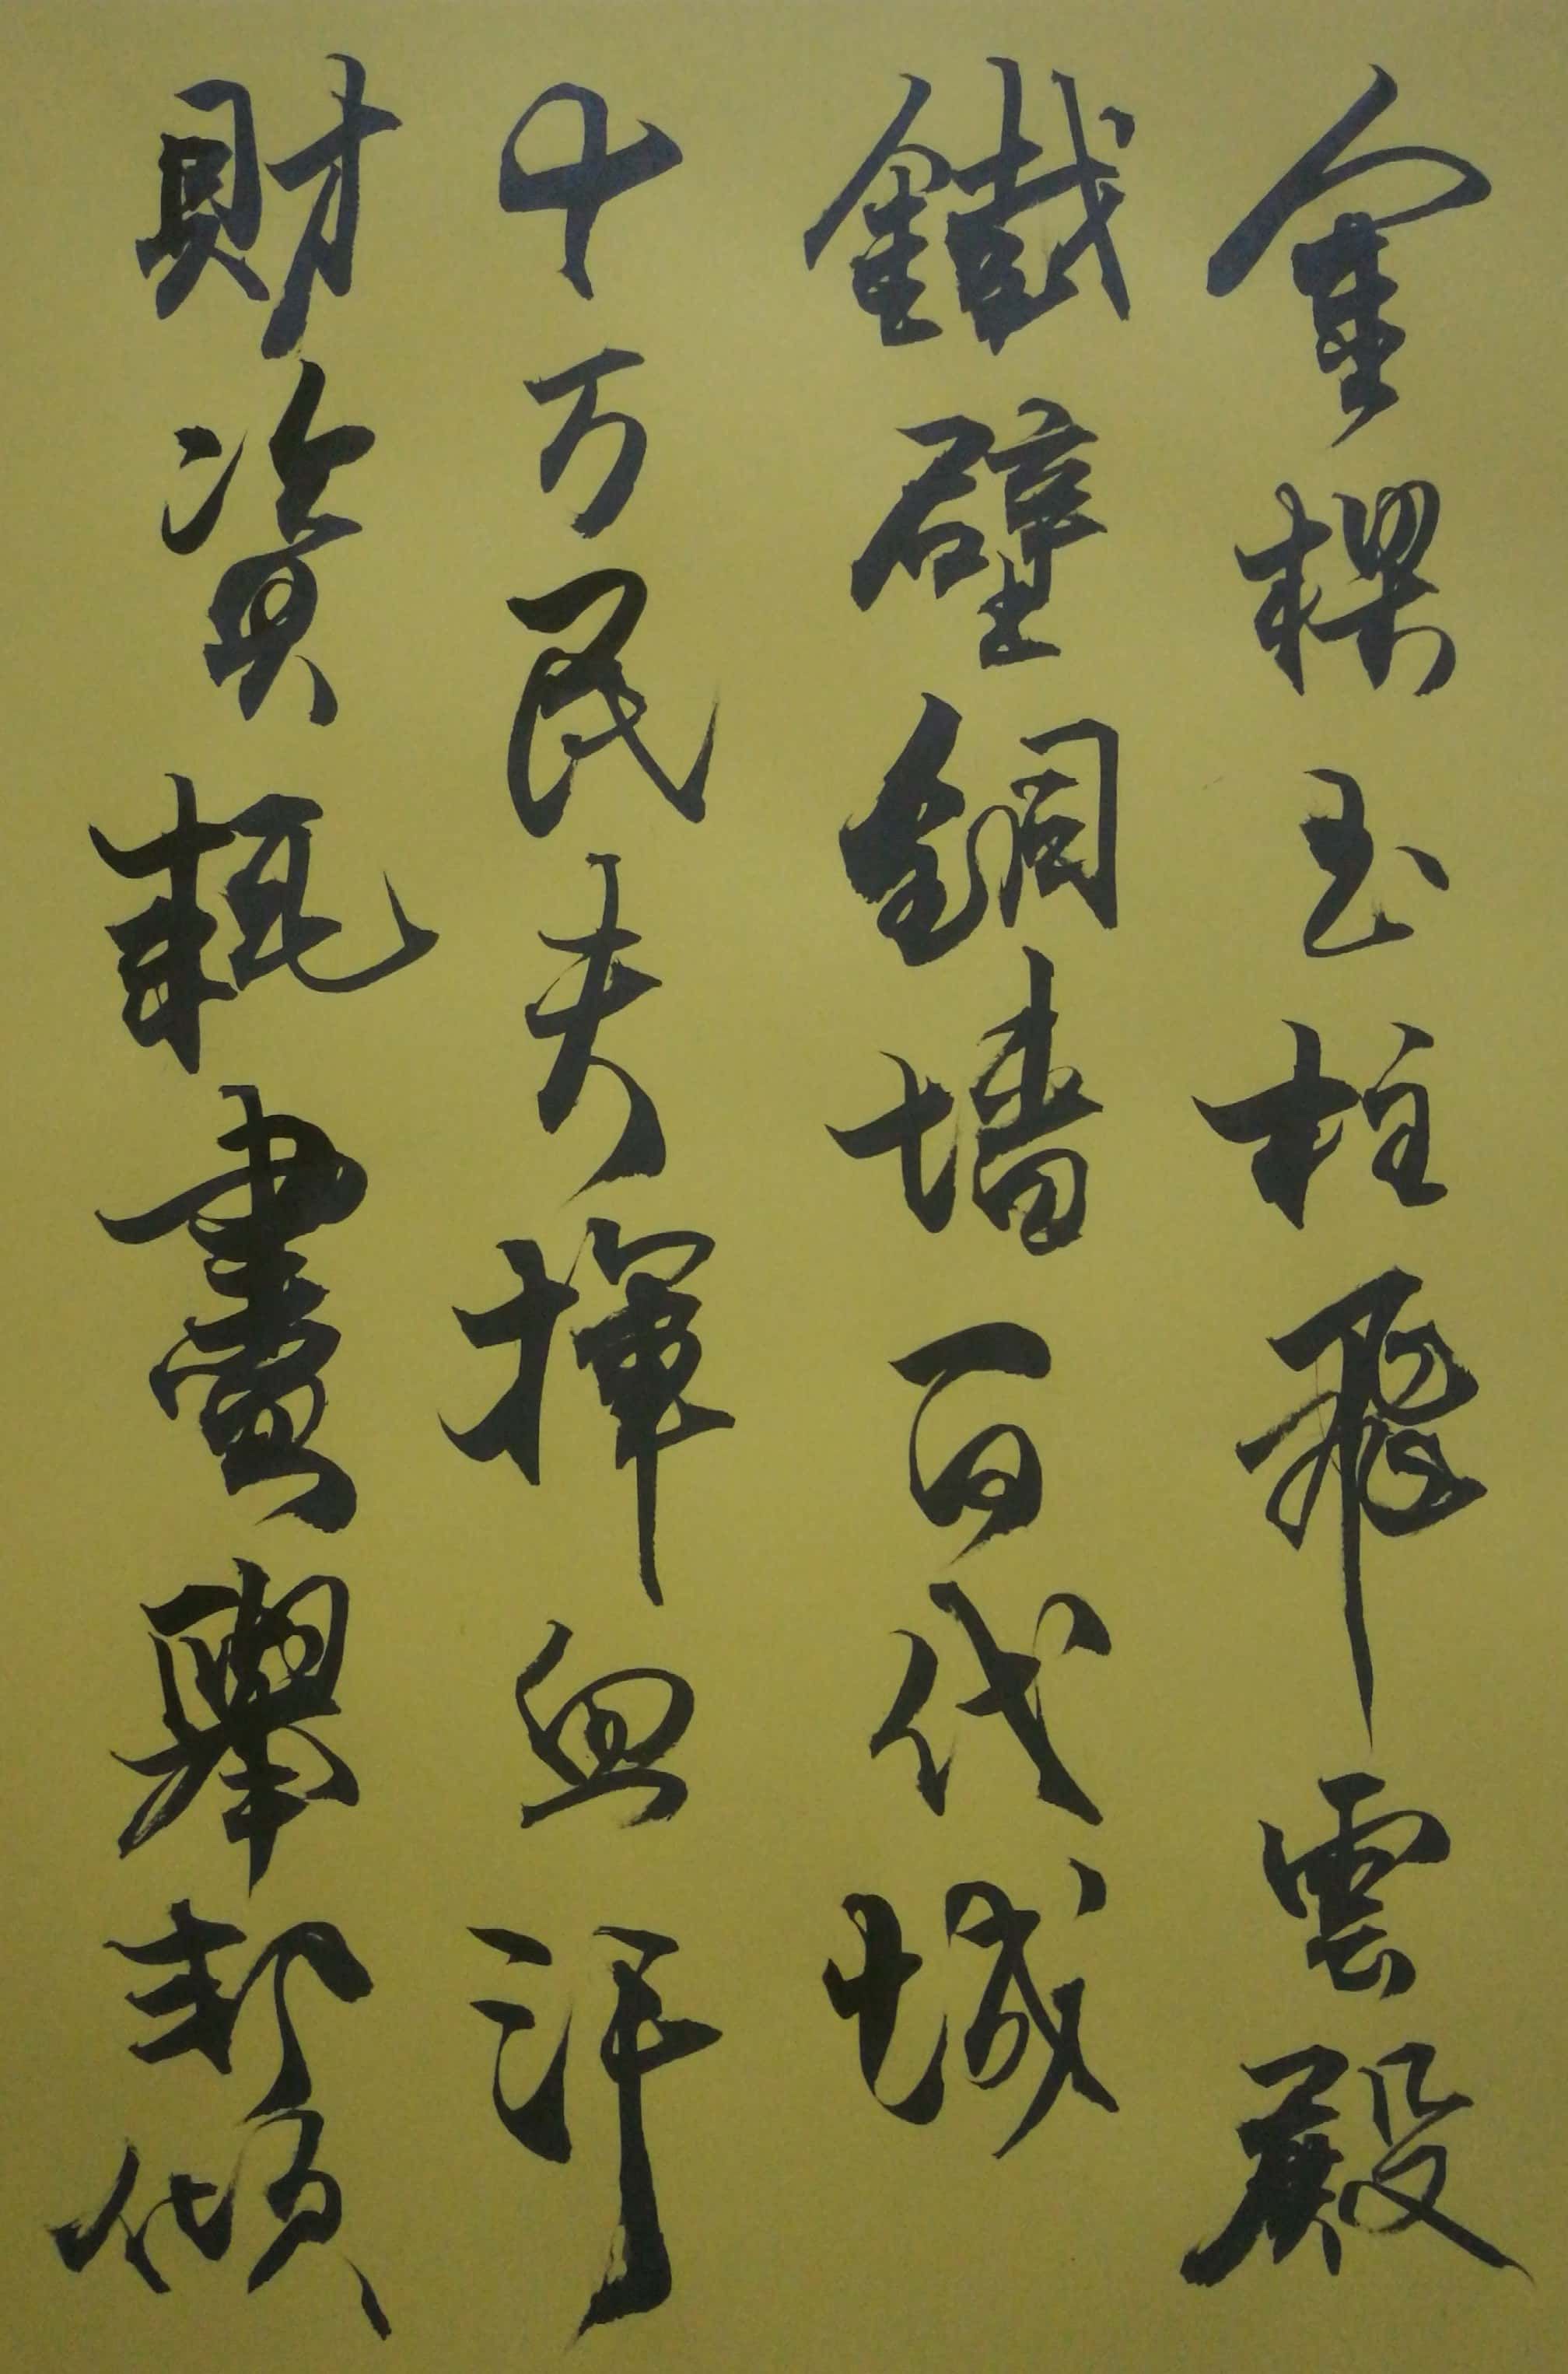 金樑玉柱飛雲殿
鐵壁銅墙百代城
十万民夫揮血汗
財資耗盡舉邦傾